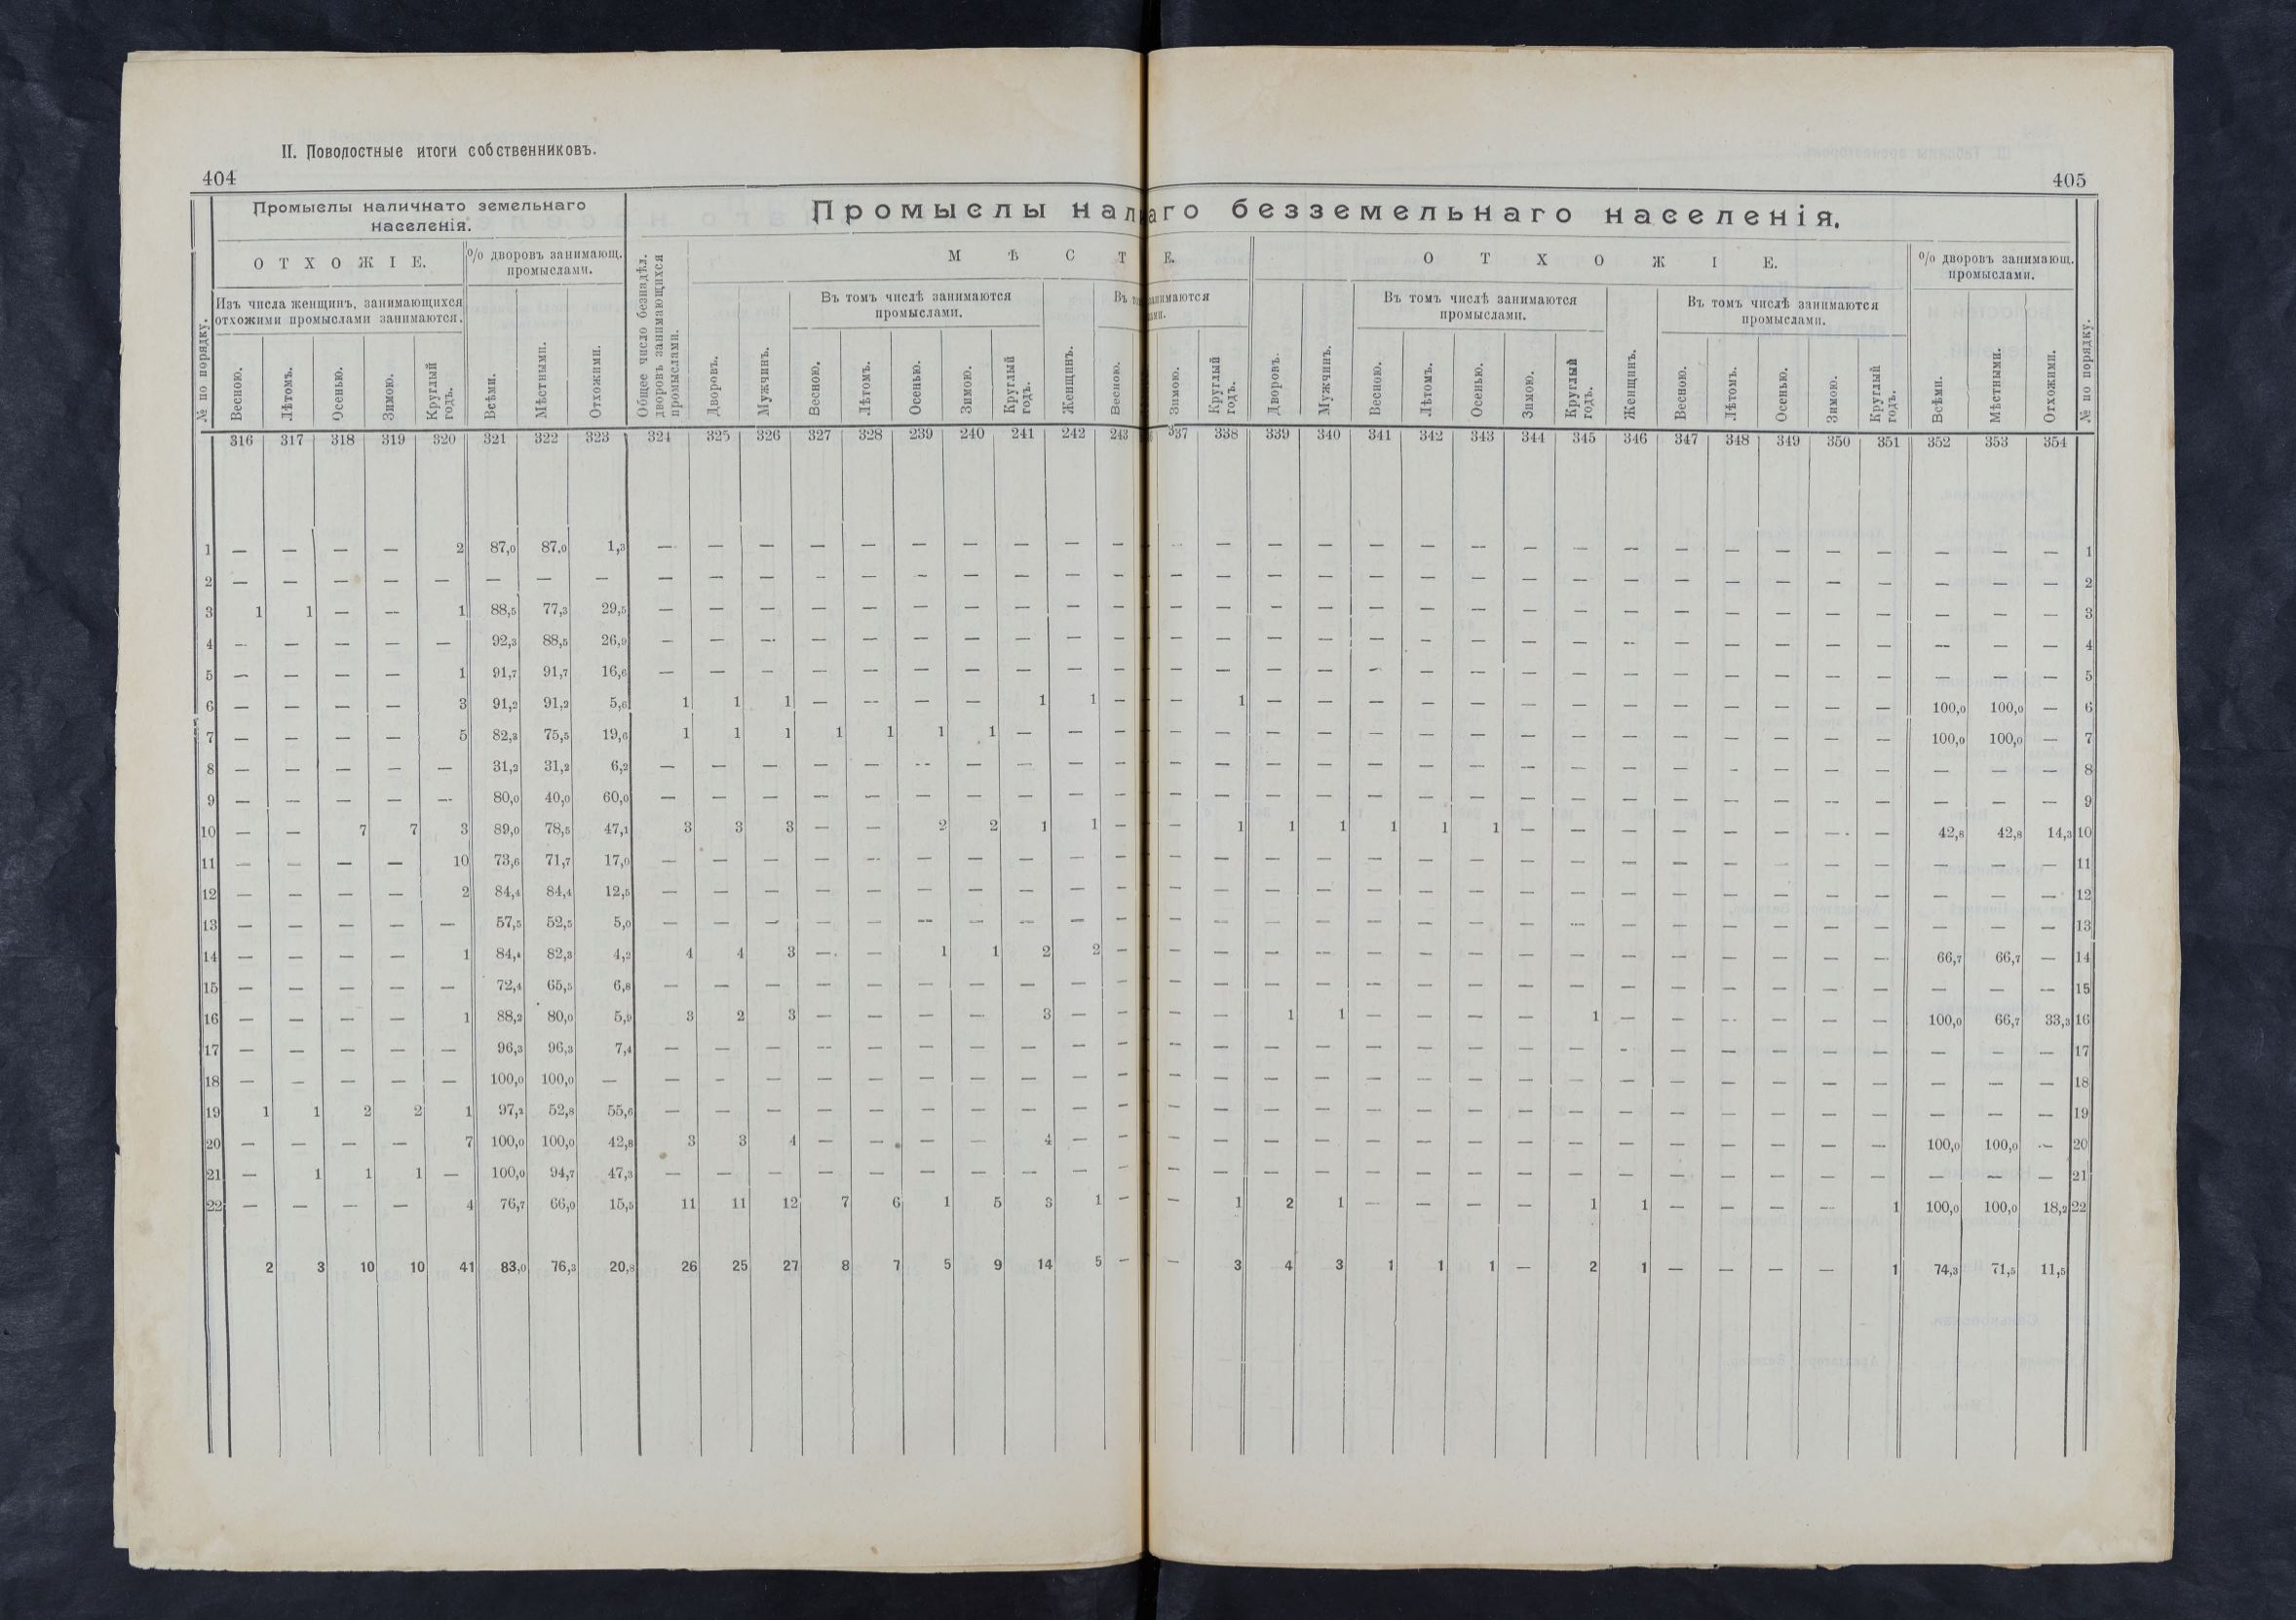 II. Поволостные итоги собственниковъ.
404
405
Промыслы наличнато земельнаго
населенія.
Промыслы нал
аго безземельнаго населенія.
ОТХОЖІЕ.
% дворовъ занимающ.
промыслами.
Изъ числа женщинъ, занимающихся
отхожими промыслами занимаются.
МѢСТ
Е.
ОТХОЖІЕ.
% дворовъ занимающ.
промыслами.
Въ томъ числѣ занимаются
промыслами.
Въ
занимаются
Въ томъ числѣ занимаются
промыслами.
Въ томъ числѣ занимаются
промыслами.
№ по порядку. Весною. Лѣтомъ. Осенью. Зимою. Круглый годъ. Всѣми. Мѣстными. Отхожими. Общее число безнадѣл. дворовъ занимающихся промыслами. Дворовъ. Мужчинъ. Весною. Лѣтомъ. Осенью. Зимою. Круглый годъ. Женщинъ. Весною. Зимою. Круглый годъ. Дворовъ. Мужчинъ. Весною. Лѣтомъ. Осенью. Зимою. Круглый годъ. Женщинъ. Весною. Лѣтомъ. Осенью. Зимою. Круглый годъ. Всѣми. Мѣстными. Отхожими. № по порядку.
316 317 318 319 320 321 322 323 324 325 326 327 328 239 240 241 242 243 337 338 339 340 341 342 343 344 345 346 347 348 349 350 351 352 353 354
1 — — — — 2 87,0 87,0 1,3 — — — — — — — — — — — — — — — — — — — — — — — — — — — — 1
2 — — — — — — — — — — — — — — — — — — — — — — — — — — — — — — — — — — — — 2
3 1 1 — — 1 88,5 77,3 29,5 — — — — — — — — — — — — — — — — — — — — — — — — — — — — 3
4 — — — — — 92,3 88,5 26,9 — — — — — — — — — — — — — — — — — — — — — — — — — — — — 4
5 — — — — 1 91,7 91,7 16,6 — — — — — — — — — — — — — — — — — — — — — — — — — — — — 5
6 — — — — 3 91,2 91,2 5,6 1 1 1 — — — — 1 1 — — 1 — — — — — — — — — — — — — 100,0 100,0 — 6
7 — — — — 5 82,3 75,5 19,6 1 1 1 1 1 1 1 — — — — — — — — — — — — — — — — — — 100,0 100,0 — 7
8 — — — — — 31,2 31,2 6,2 — — — — — — — — — — — — — — — — — — — — — — — — — — — — 8
9 — — — — — 80,0 40,0 60,0 — — — — — — — — — — — — — — — — — — — — — — — — — — — — 9
10 — — 7 7 3 89,0 78,5 47,1 3 3 3 — — 2 2 1 1 — — 1 1 1 1 1 1 — — — — — — — — 42,8 42,8 14,3 10
11 — — — — 10 73,6 71,7 17,0 — — — — — — — — — — — — — — — — — — — — — — — — — — — — 11
12 — — — — 2 84,4 84,4 12,5 — — — — — — — — — — — — — — — — — — — — — — — — — — — — 12
13 — — — — — 57,5 52,5 5,0 — — — — — — — — — — — — — — — — — — — — — — — — — — — — 13
14 — — — — 1 84,4 82,3 4,2 4 4 3 — — 1 1 2 2 — — — — — — — — — — — — — — — — 66,7 66,7 — 14
15 — — — — — 72,4 65,5 6,8 — — — — — — — — — — — — — — — — — — — — — — — — — — — — 15
16 — — — — 1 88,2 80,0 5,9 3 2 3 — — — — 3 — — — — 1 1 — — — — 1 — — — — — — 100,0 66,7 33,3 16
17 — — — — — 96,3 96,3 7,4 — — — — — — — — — — — — — — — — — — — — — — — — — — — — 17
18 — — — — — 100,0 100,0 — — — — — — — — — — — — — — — — — — — — — — — — — — — — — 18
19 1 1 2 2 1 97,2 52,8 55,6 — — — — — — — — — — — — — — — — — — — — — — — — — — — — 19
20 — — — — 7 100,0 100,0 42,8 3 3 4 — — — — 4 — — — — — — — — — — — — — — — — — 100,0 100,0 — 20
21 — 1 1 1 — 100,0 94,7 47,3 — — — — — — — — — — — — — — — — — — — — — — — — — — — — 21
22 — — — — 4 76,7 66,0 15,5 11 11 12 7 6 1 5 3 1 — — 1 2 1 — — — — 1 1 — — — — 1 100,0 100,0 18,2 22
2 3 10 10 41 83,0 76,3 20,8 26 25 27 8 7 5 9 14 5 — — 3 4 3 1 1 1 — 2 1 — — — — 1 74,3 71,5 11,5